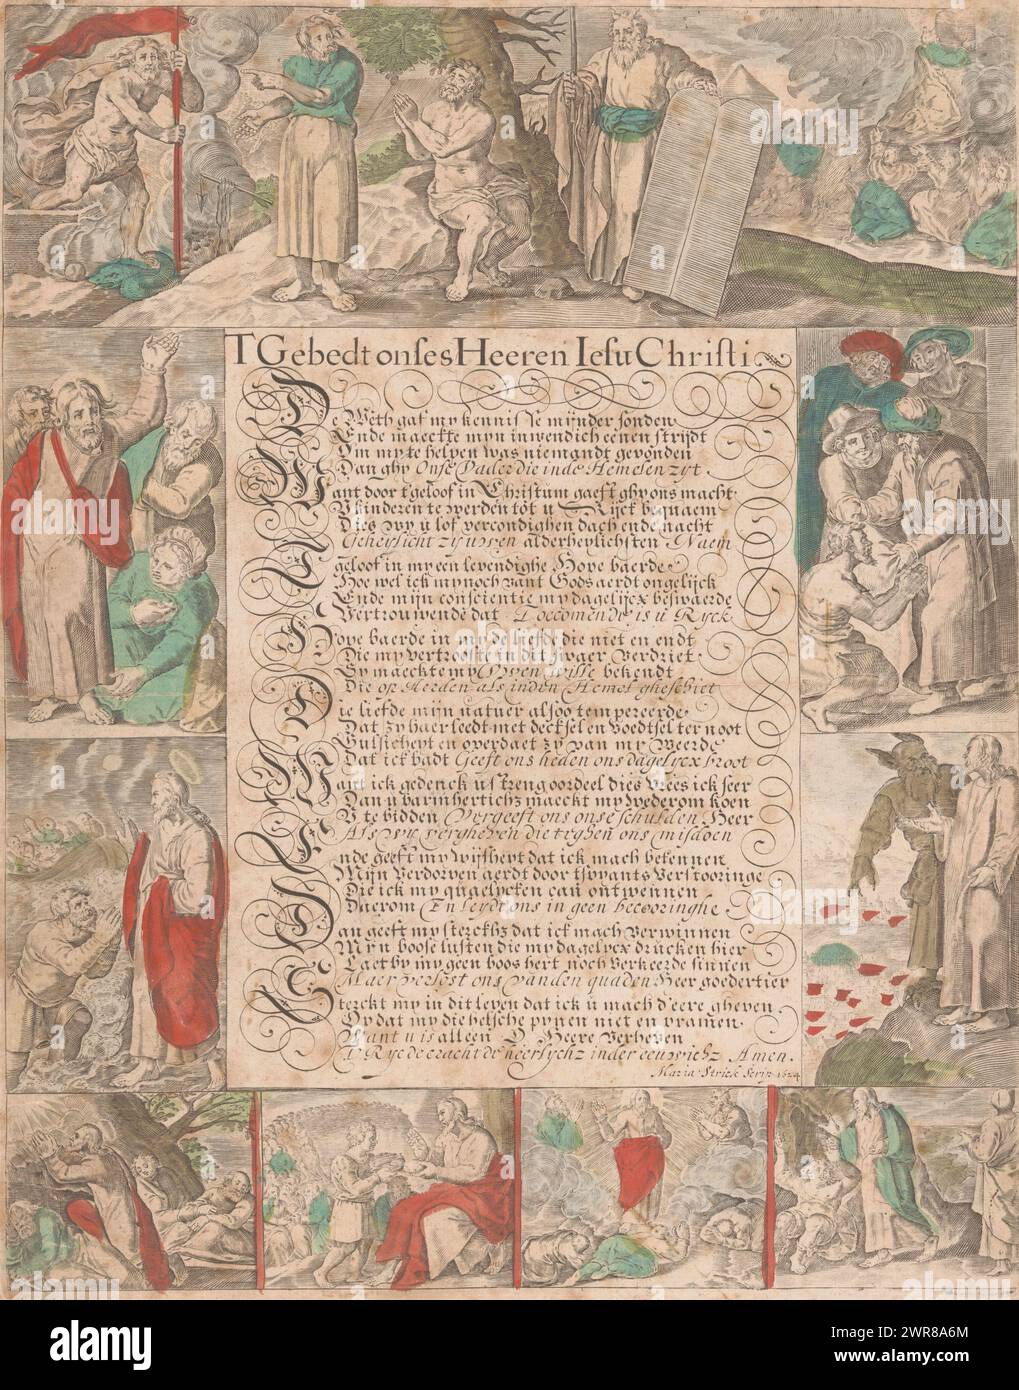 TGebedt onses Heeren Iesu Christi
De Weth gaf my kennisse mijnder sonden
Ende maeckte myn inwendich eenen strijdt
Om my te helpen was niemandt gevonden
Dan ghy Onse Vader die inde Hemelen zyt
Want door t'geloof in Christum gaeft ghy ons macht
V kinderen te werden tot u Ryck bequaem
Dies wy u lof vercondighen dach ende nacht
Geheylicht zy uwen alderheylichsten Naem
geloof in my een levendighe Hope baerde
Hoe wel ick my noch vant Gods aerdt ongelijck
Ende mijn conscientie my dagelycx beswaerde
Vertrouwende dat Toecomende is u Ryck
Hope baerde in my de liefde die niet en endt
Die my vertrooste in dit swaer Verdriet
Gy maeckte my Uwen Wille bekendt
Die op Aerden als inden Hemel gheschiet
Die liefde mijn natuer alsoo tempereerde
Dat zy haer leedt met decksel en voedtsel ter noot
Gulsicheyt en overdaet zy van my Weerde
Dat ick badt Geeft ons heden ons dagelycx broot
Want ick gedenck u streng oordeel dies Vrees ick seer
Dan u barmhertichz maeckt my wederom koen
V te bidden Vergeeft ons onse schulden Heer
Als wy vergheven die teghen ons misdoen
Ende geeft my Wijsheyt dat ick mach bekennen
Mijn Verdorven aerdt door tswants Verstooringe
Die ick my quaelycken can ontwennen
Daerom En leydt ons in geen becooringhe
Dan geeft my sterckhz dat ick mach Verwinnen
Mijn boose lusten die my dagelycx drucken hier
Laet by my geen boos hert noch Verkeerde sinnen
Maer verlost ons vanden quaden Heer goedertier
Sterckt my in dit leven dat ick u mach d'eere gheven
Op dat my die helsche pynen niet en pramen
Want u is alleen O Heere Verheven
T Rycke cracht de heerlychz inder eeuwichz Amen.
Maria Strick Scrip. 1624
alamy
2WR8A6M
www.alamy.com